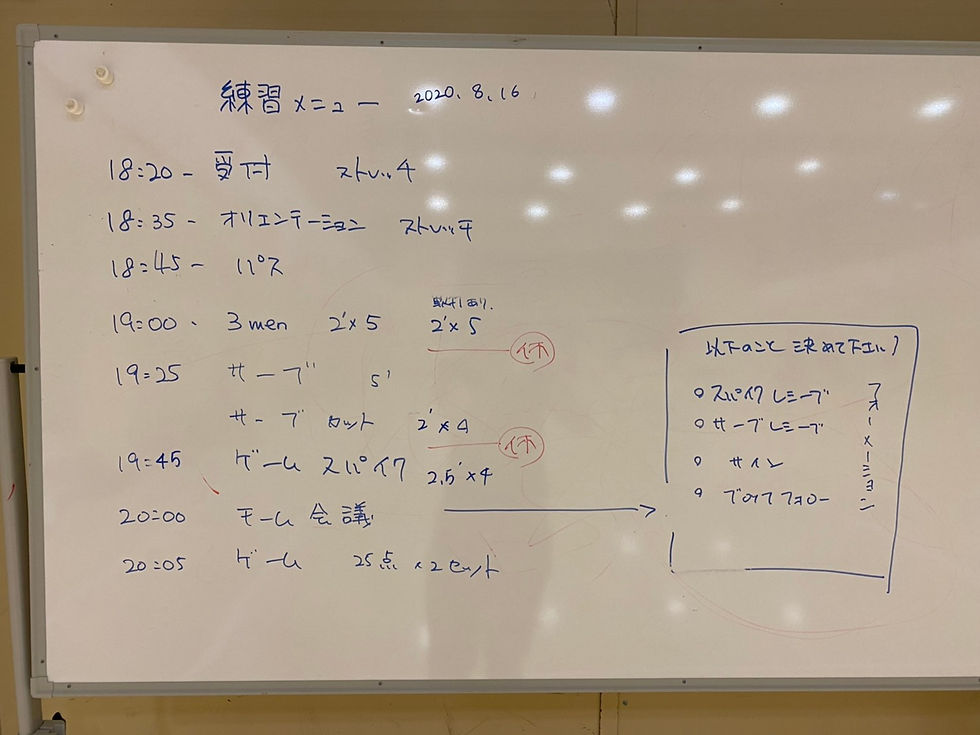 練習メニュー 2020.8.16
18:20 - 受付 ストレッチ
18:35 - オリエンテーション ストレッチ
18:45 - パス
19:00 - 3men 2'×5 2'×5
あり.
休
19:25 サーブ 5'
サーブ カット 2'×4
休
19:45 ゲーム スパイク 2.5'×4
20:00 チーム会議
20:05 ゲーム 25点×2セット
以下のこと決めて下さい
○スパイクレシーブ
○サーブレシーブ
○サイン
○ブロックフォロー
フォーメーション